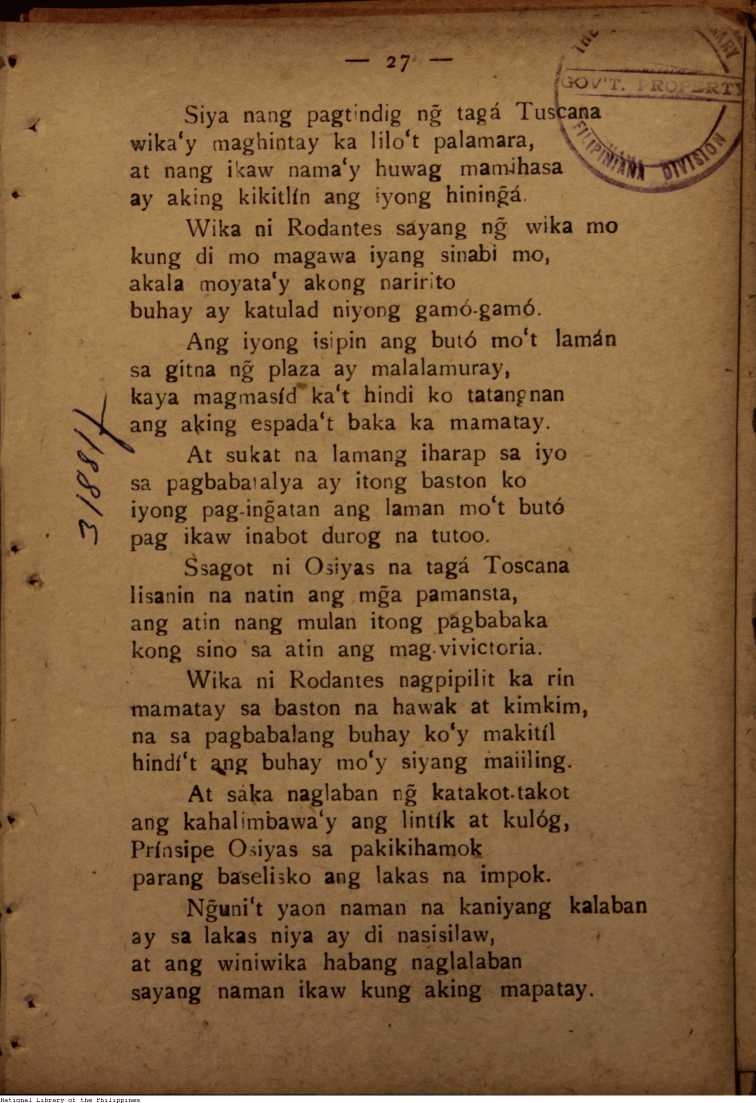 — 27 —
GOV'T. PROPERTY
FILIPINIANA DIVISION
Siya nang pagtindig ng̃ tagá Tuscana
wika‘y maghintay ka lilo‘t palamara,
at nang ikaw nama‘y huwag mamihasa
ay aking kikitlín ang iyong hining̃á.
Wika ni Rodantes sayang ng̃ wika mo
kung di mo magawa iyang sinabi mo,
akala moyata‘y akong naririto
buhay ay katulad niyong gamó-gamó.
Ang iyong isipin ang butó mo‘t lamán
sa gitna ng̃ plaza ay malalamuray,
kaya magmasíd ka‘t hindi ko tatangnan
ang aking espada‘t baka ka mamatay.
At sukat na lamang iharap sa iyo
sa pagbabatalya ay itong baston ko
iyong pag-ing̃atan ang laman mo‘t butó
pag ikaw inabot durog na tutoo.
Ssagot ni Osiyas na tagá Toscana
lisanin na natin ang mg̃a pamansta,
ang atin nang mulan itong pagbabaka
kong sino sa atin ang mag-vivictoria.
Wika ni Rodantes nagpipilit ka rin
mamatay sa baston na hawak at kimkim,
na sa pagbabalang buhay ko‘y makitíl
hindí‘t ang buhay mo‘y siyang maiiling.
At saka naglaban ng̃ katakot-takot
ang kahalimbawa‘y ang lintík at kulóg,
Prínsipe Osiyas sa pakikihamok
parang baselisko ang lakas na impok.
Ng̃uni‘t yaon naman na kaniyang kalaban
ay sa lakas niya ay di nasisilaw,
at ang winiwika habang naglalaban
sayang naman ikaw kung aking mapatay.
31881
National Library of the Philippines